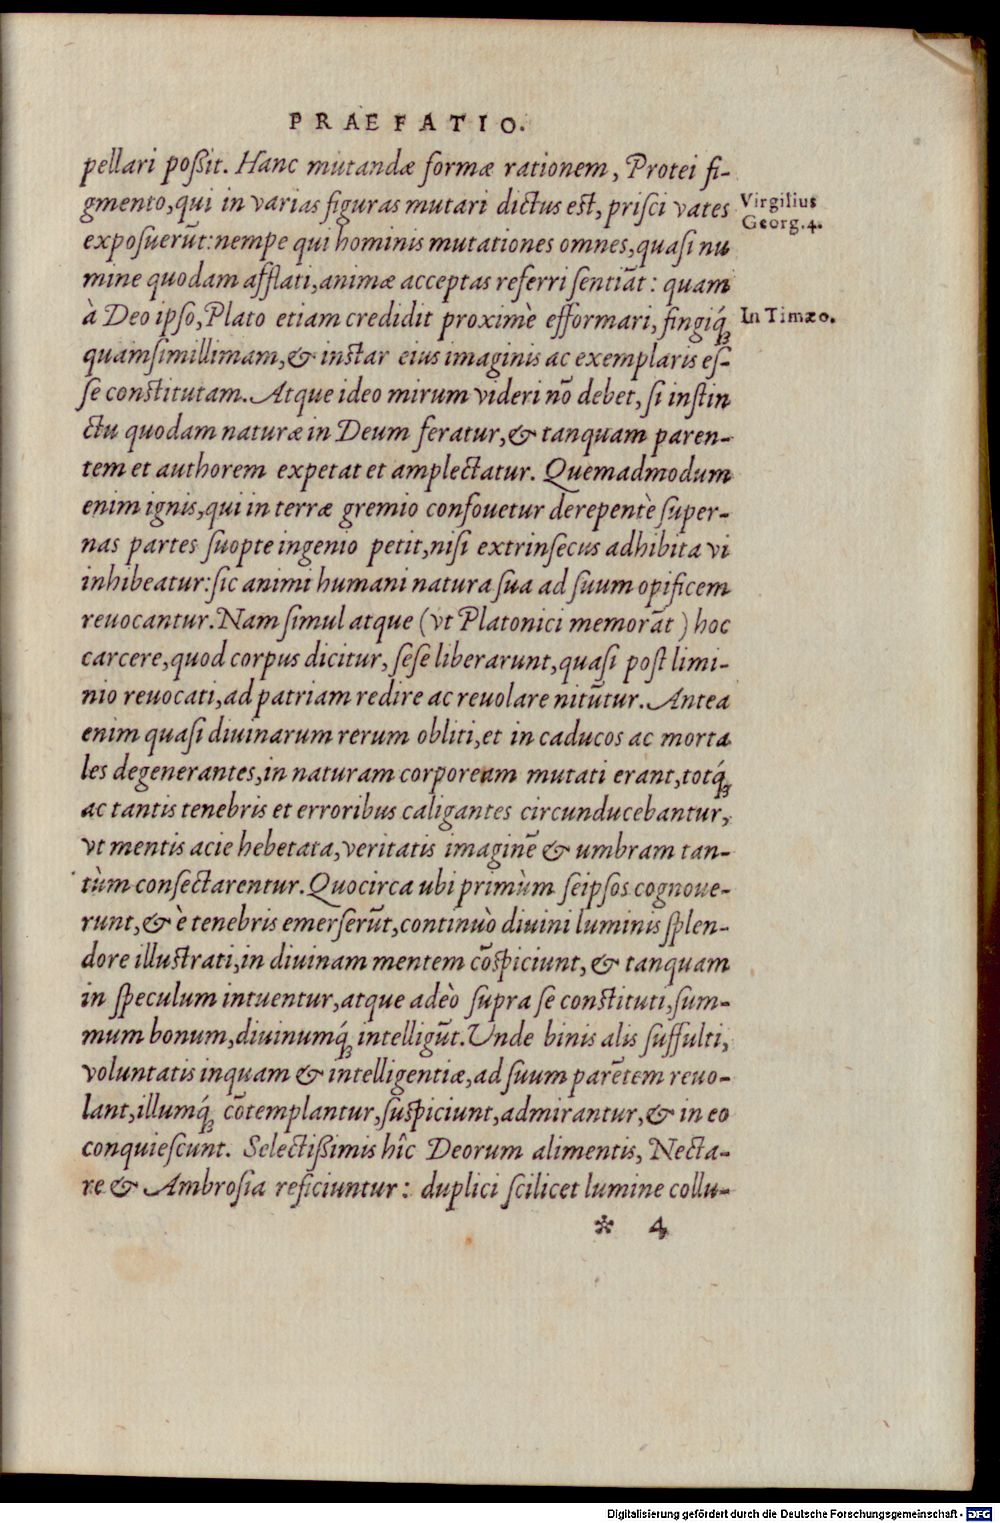 PRAEFATIO.
pellari poßit. Hanc mutandæ formæ rationem, Protei fi-
gmento, qui in varias figuras mutari dictus est, prisci vates
Virgilius
Georg. 4.
exposuerūt: nempe qui hominis mutationes omnes, quasi nu
mine quodam afflati, animæ acceptas referri sentiāt: quam
à Deo ipso, Plato etiam credidit proximè efformari, fingiq́;
In Timæo.
quamsimillimam, & instar eius imaginis ac exemplaris es-
se constitutam. Atque ideo mirum videri nō debet, si instin
ctu quodam naturæ in Deum feratur, & tanquam paren-
tem et authorem expetat et amplectatur. Quemadmodum
enim ignis, qui in terræ gremio confouetur derepentè super-
nas partes suopte ingenio petit, nisi extrinsecus adhibita vi
inhibeatur: sic animi humani natura sua ad suum opificem
reuocantur. Nam simul atque (vt Platonici memorāt) hoc
carcere, quod corpus dicitur, sese liberarunt, quasi post limi-
nio reuocati, ad patriam redire ac reuolare nitūtur. Antea
enim quasi diuinarum rerum obliti, et in caducos ac morta
les degenerantes, in naturam corpoream mutati erant, totq́;
ac tantis tenebris et erroribus caligantes circunducebantur,
vt mentis acie hebetata, veritatis imaginē & umbram tan-
tùm consectarentur. Quocirca ubi primùm seipsos cognoue-
runt, & è tenebris emerserūt, continuò diuini luminis splen-
dore illustrati, in diuinam mentem cōspiciunt, & tanquam
in speculum intuentur, atque adeò supra se constituti, sum-
mum bonum, diuinumq́; intelligūt. Unde binis alis suffulti,
voluntatis inquam & intelligentiæ, ad suum parētem reuo-
lant, illumq́; cōtemplantur, suspiciunt, admirantur, & in eo
conquiescunt. Selectißimis hîc Deorum alimentis, Necta-
re & Ambrosia reficiuntur: duplici scilicet lumine collu-
* 4
Digitalisierung gefördert durch die Deutsche Forschungsgemeinschaft - DFG